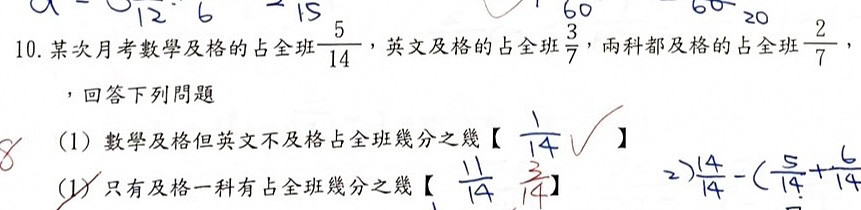 12 6 15 60 60 20
10. 某次月考數學及格的占全班 5/14 ，英文及格的占全班 3/7，兩科都及格的占全班 2/7 ，
，回答下列問題
(1) 數學及格但英文不及格占全班幾分之幾【 1/14 ✓ 】
8 (1) 只有及格一科有占全班幾分之幾【 11/14 3/14 】 2) 14/14 - ( 5/14 + 6/14